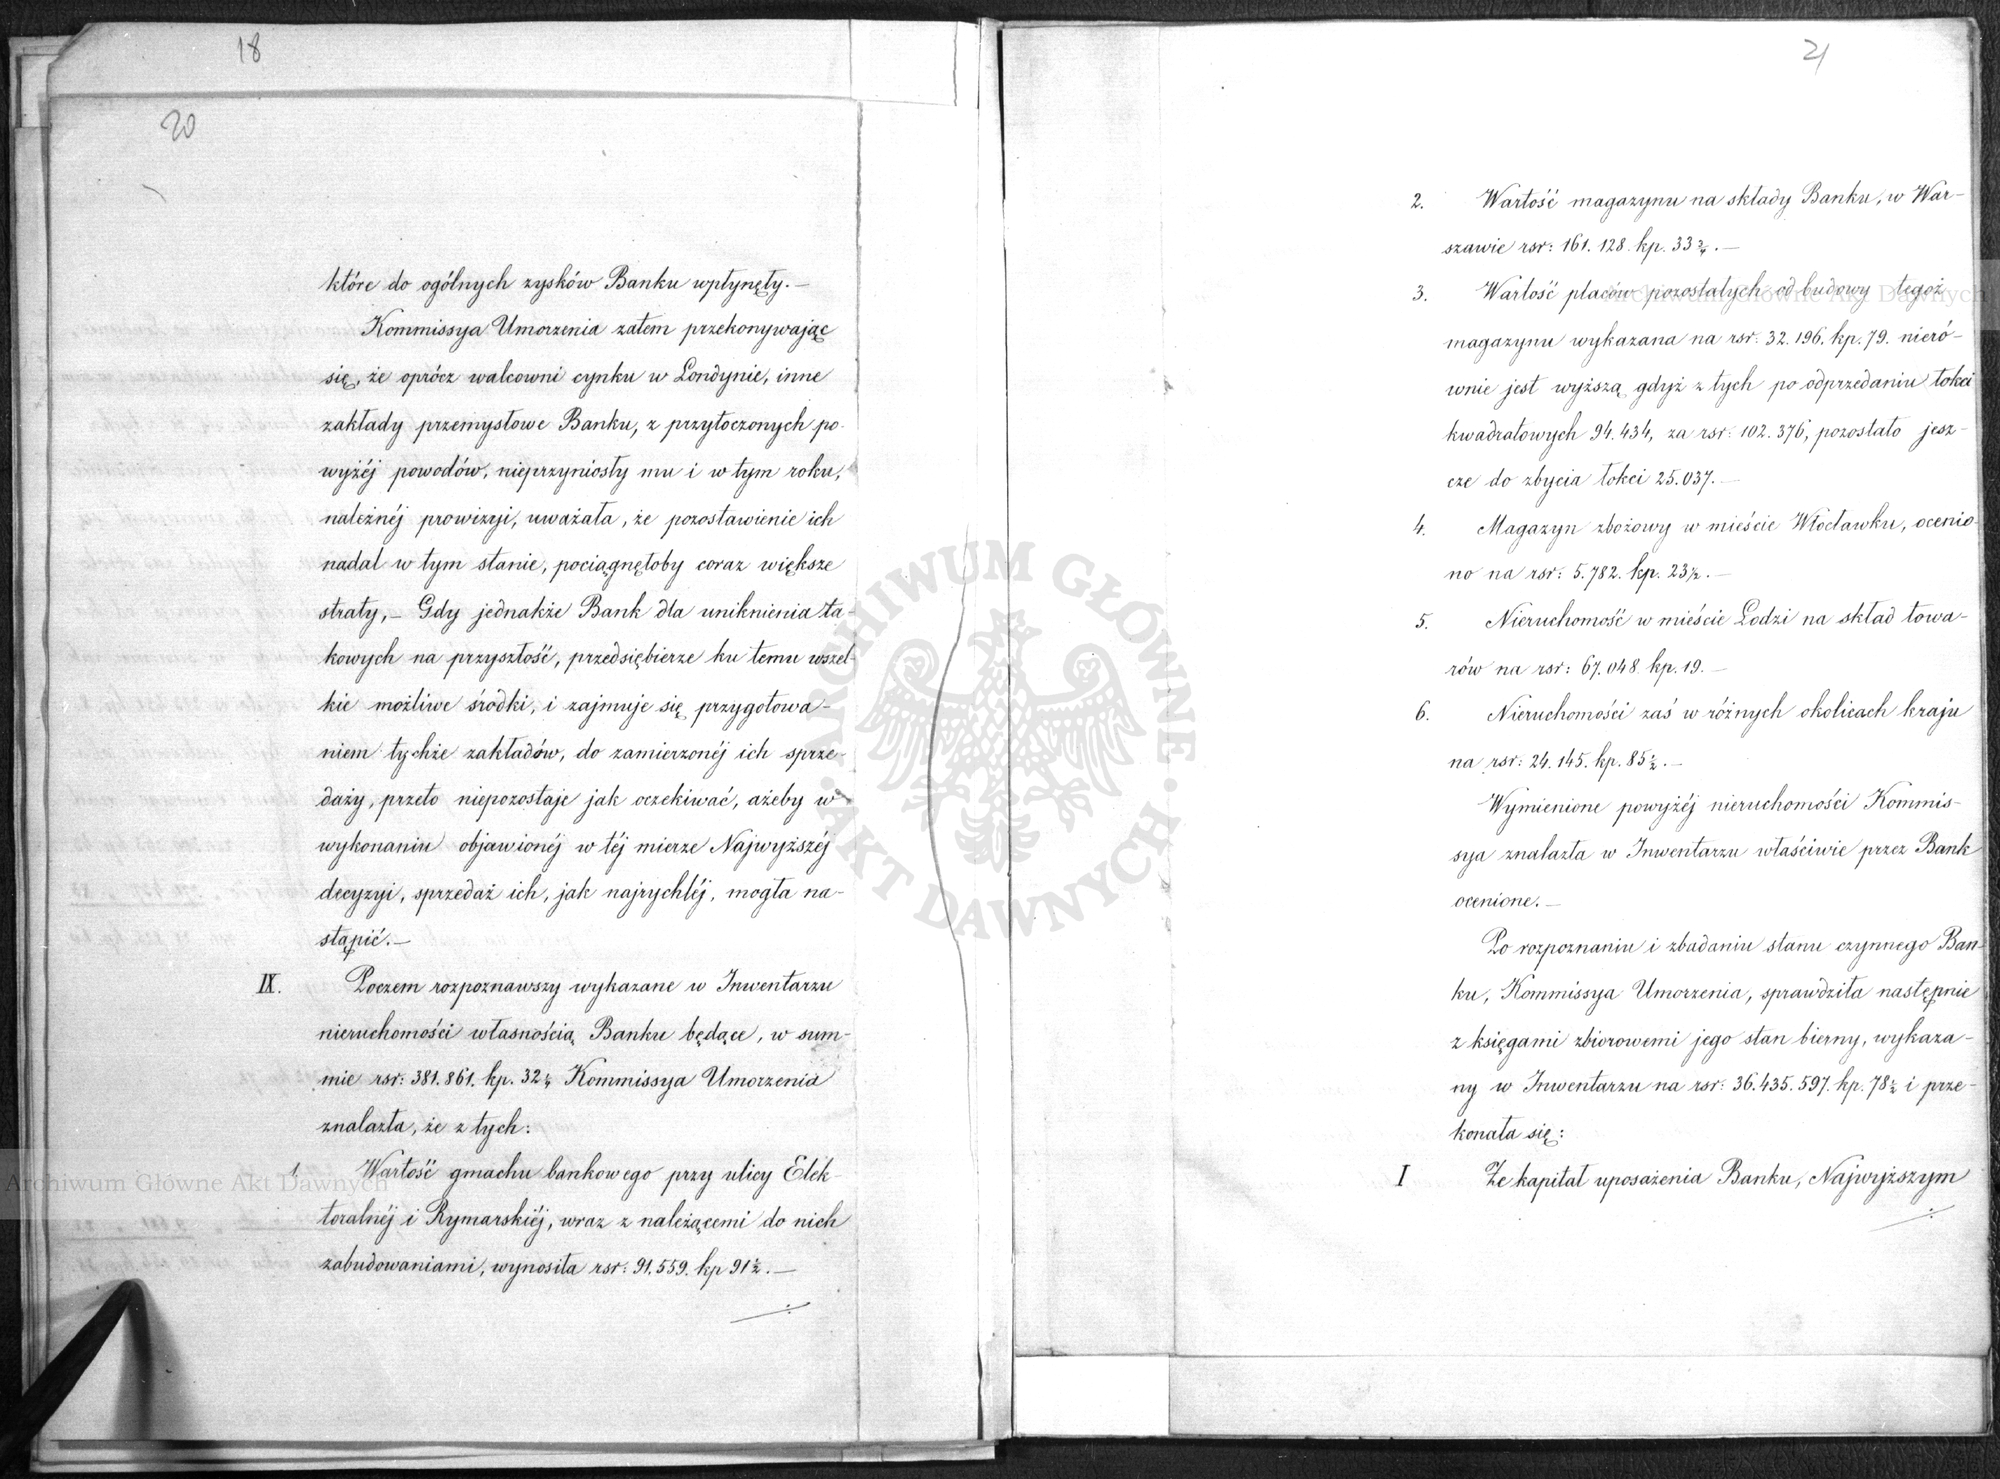 18
20
które do ogólnych zysków Banku wpłynęły.—
Kommissya Umorzenia zatem przekonywając
się, że oprócz walcowni cynku w Londynie, inne
zakłady przemysłowe Banku, z przytoczonych po-
wyżéj powodów, nieprzyniosły mu i w tym roku,
należnéj prowizyi, uważała, że pozostawienie ich
nadal w tym stanie, pociągnęłoby coraz większe
straty,— Gdy jednakże Bank dla uniknienia ta-
kowych na przyszłość, przedsiębierze ku temu wszel-
kie możliwe środki, i zajmuje się przygotowa-
niem tychże zakładów, do zamierzonéj ich sprze-
daży, przeto niepozostaje jak oczekiwać, ażeby w
wykonaniu objawionéj w téj mierze Najwyższéj
decyzyi, sprzedaż ich, jak najrychléj, mogła na-
stąpić.—
IX. Poczem rozpoznawszy wykazane w Inwentarzu
nieruchomości własnością Banku będące, w sum-
mie rsr: 381.861. kp. 32 1/4 Kommissya Umorzenia
znalazła, że z tych:
1 Wartość gmachu bankowego przy ulicy Elek-
toralnéj i Rymarskiéj, wraz z należącemi do nich
zabudowaniami, wynosiła rsr: 91.559. kp 91 1/2.—
21
2. Wartość magazynu na składy Banku, w War-
szawie rsr: 161.128 kp. 33 3/4.—
3. Wartość placów pozostałych od budowy tegoż
magazynu wykazana na rsr: 32.196. kp. 79. nieró-
wnie jest wyższą gdyż z tych po odprzedaniu łokci
kwadratowych 94.434, za rsr: 102.376, pozostało jesz-
cze do zbycia łokci 25.037.—
4. Magazyn zbożowy w mieście Włocławku, ocenio-
no na rsr: 5.782. kp. 23 1/2.—
5. Nieruchomość w mieście Łodzi na skład towa-
rów na rsr: 67.048 kp. 19.—
6. Nieruchomości zaś w różnych okolicach kraju
na rsr: 24.145. kp. 85 1/2.—
Wymienione powyżéj nieruchomości Kommis-
sya znalazła w Inwentarzu właściwie przez Bank
ocenione.—
Po rozpoznaniu i zbadaniu stanu czynnego Ban-
ku, Kommissya Umorzenia, sprawdziła następnie
z księgami zbiorowemi jego stan bierny, wykaza-
ny w Inwentarzu na rsr: 36.435.597. kp. 78 1/2 i prze-
konała się:
I Że kapitał uposażenia Banku, Najwyższym
ARCHIWUM GŁÓWNE AKT DAWNYCH
Archiwum Główne Akt Dawnych
Archiwum Główne Akt Dawnych